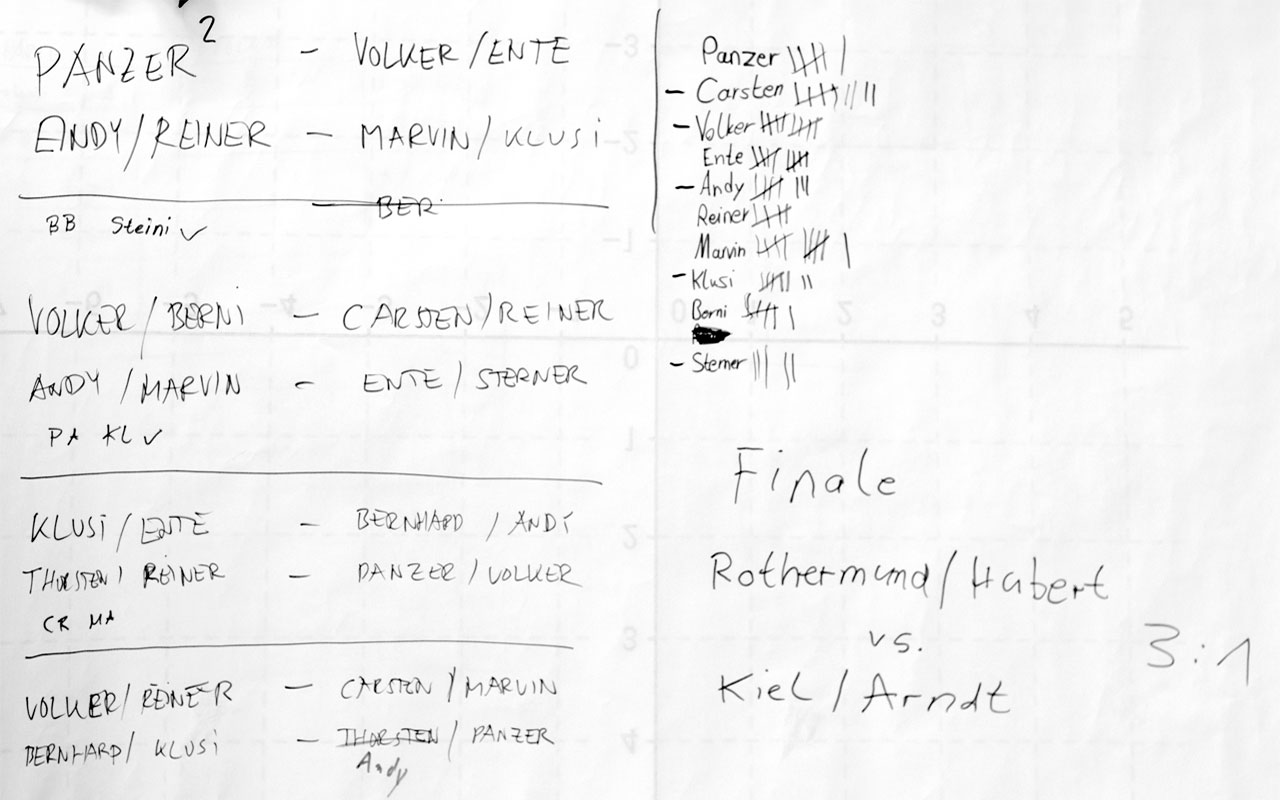 PANZER² - VOLKER/ENTE
ANDY/REINER - MARVIN/KLUSi
BER
BB Steini ✓
VOLKER/BERNi - CARSTEN/REINER
ANDY/MARVIN - ENTE/STERNER
PA KL ✓
KLUSi/ENTE - BERNHARD/ANDY
THORSTEN/REINER - PANZER/VOLKER
CR MA
VOLKER/REINER - CARSTEN/MARVIN
BERNHARD/KLUSi - THORSTEN/PANZER
Andy
Panzer
- Carsten
- Volker
Ente
- Andy
Reiner
Marvin
- Klusi
Berni
- Sterner
Finale
Rothermund/Hubert
vs.
Kiel/Arndt
3:1
-3
-2
-1
0
1
2
3
4
-6 -4 -3 -2 0 2 3 4 5